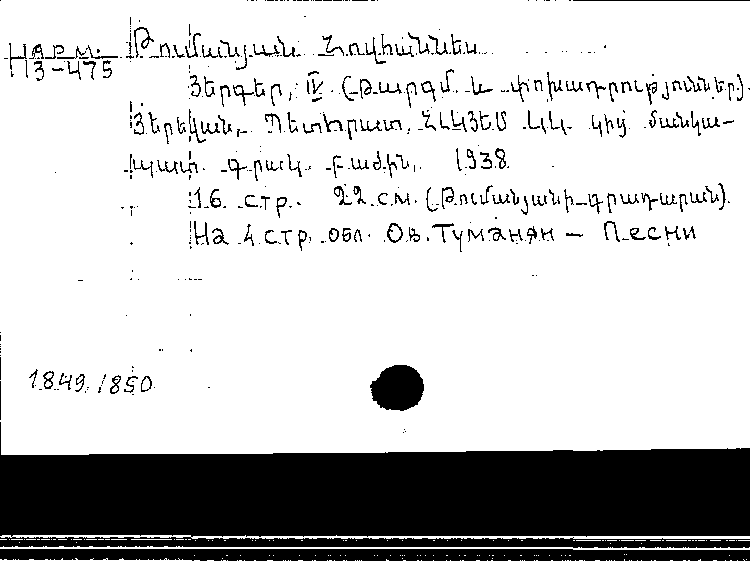 Թումանյան Հովհաննես
П3-475
Յերգեր, IV (Թարգմ. և փոխադրություններ).
Յերևան, Պետհրատ, ՀԼԿՅԵՄ ԿԿ կից մանկա-
պատ. գրակ. բաժին, 1938
16 стр. 22 см. (Թումանյանի գրադարան).
На 4 стр. обл. Ов. Туманян – Песни
1849,/850